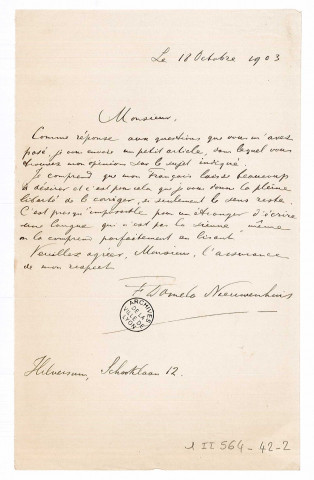 Le 18 Octobre 1903
Monsieur,
Comme réponse aux questions que vous m'avez
posé, je vous envoie un petit article, dans lequel vous
trouverez mon opinion sur le sujet indiqué.
Je comprend que mon Français laisse beaucoup
à désirer et c'est pour cela que je vous donne la pleine
liberté de le corriger, si seulement le sens reste.
C'est presqu'impossible pour un étranger d'écrire
une langue qui n'est pas la sienne, même
on la comprend parfaitement en lisant.
Veuillez agréer, Monsieur, l'assurance
de mon respect
F. Domela Nieuwenhuis
ARCHIVES
DE LA
VILLE DE
LYON
Hilversum, Schooklaan 12.
1 II 564-42-2